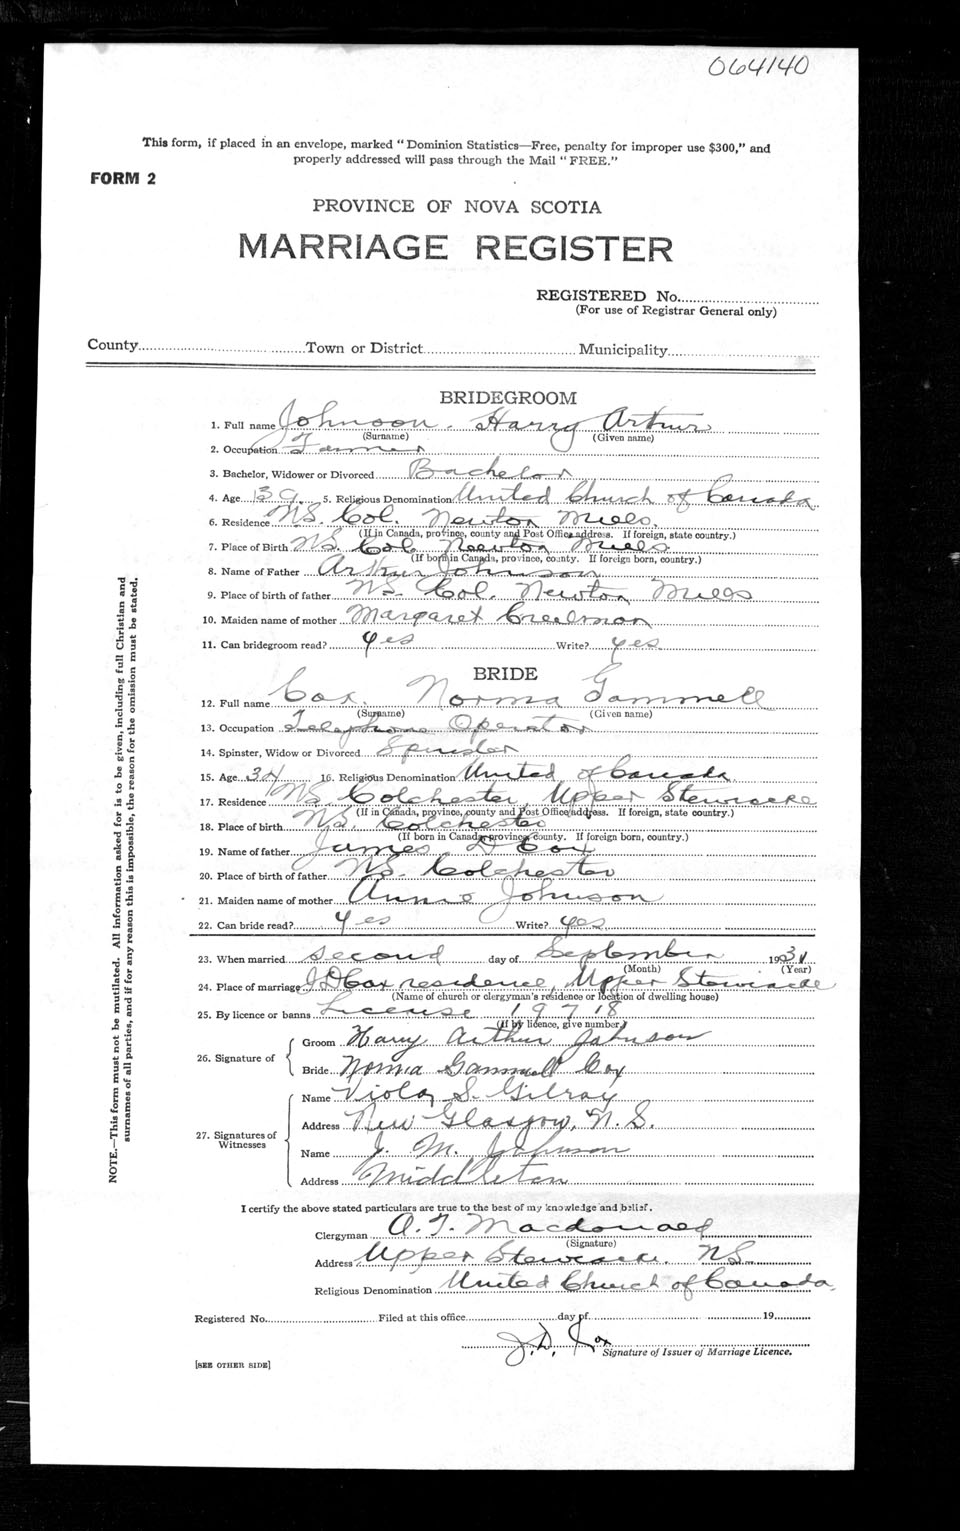 064140
This form, if placed in an envelope, marked "Dominion Statistics—Free, penalty for improper use $300," and
properly addressed will pass through the Mail "FREE."
FORM 2
PROVINCE OF NOVA SCOTIA
MARRIAGE REGISTER
REGISTERED No.
(For use of Registrar General only)
County Town or District Municipality
BRIDEGROOM
1. Full name Johnson. Harry Arthur
(Surname) (Given name)
2. Occupation Farmer
3. Bachelor, Widower or Divorced Bachelor
4. Age 39 5. Religious Denomination United Church of Canada
6. Residence N.S. Col. Newton Mills.
(If in Canada, province, county and Post Office address. If foreign, state country.)
7. Place of Birth N.S. Col. Newton Mills
(If born in Canada, province, county. If foreign born, country.)
8. Name of Father Arthur Johnson
9. Place of birth of father N.S. Col. Newton Mills
10. Maiden name of mother Margaret Creelman
11. Can bridegroom read? Yes Write? yes
BRIDE
12. Full name Cox. Norma Gammell
(Surname) (Given name)
13. Occupation Telephone Operator
14. Spinster, Widow or Divorced Spinster
15. Age 34 16. Religious Denomination United of Canada
17. Residence N.S. Colchester, Upper Stewiacke
(If in Canada, province, county and Post Office address. If foreign, state country.)
18. Place of birth N.S. Colchester
(If born in Canada, province, county. If foreign born, country.)
19. Name of father James D Cox
20. Place of birth of father N.S. Colchester
21. Maiden name of mother Annie Johnson
22. Can bride read? Yes Write? yes
23. When married second day of September 1931
(Month) (Year)
24. Place of marriage J D Cox residence, Upper Stewiacke
(Name of church or clergyman's residence or location of dwelling house)
25. By licence or banns License 19718
(If by licence, give number.)
26. Signature of
Groom Harry Arthur Johnson
Bride Norma Gammell Cox
27. Signatures of Witnesses
Name Viola S. Gilroy
Address New Glasgow, N.S.
Name J. M. Johnson
Address Middleton
I certify the above stated particulars are true to the best of my knowledge and belief.
Clergyman A. F. Macdonald
(Signature)
Address Upper Stewiacke, N.S.
Religious Denomination United Church of Canada
Registered No. Filed at this office day of 19
J. D. Cox
Signature of Issuer of Marriage Licence.
[SEE OTHER SIDE]
NOTE.—This form must not be mutilated. All information asked for is to be given, including full Christian and
surnames of all parties, and if for any reason this is impossible, the reason for the omission must be stated.